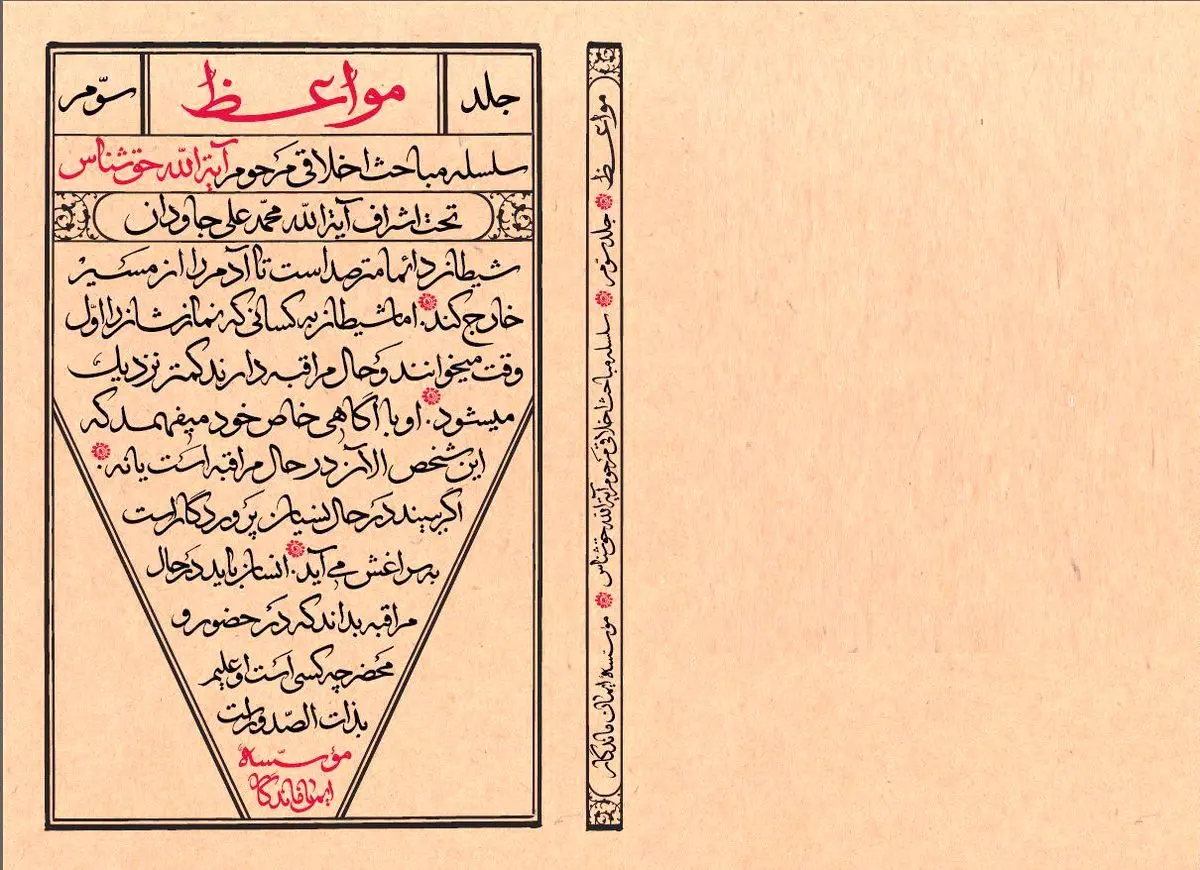 جلد مواعظ سوّم
سلسله مباحث اخلاقی مرحوم آیة الله حق شناس
تحت اشراف آیة الله محمّد علی جاودان
شیطان دائما مترصد است تا آدم را از مسیر
خارج کند. اما شیطان به کسانی که نمازشان را اوّل
وقت میخوانند و حال مراقبه دارند کمتر نزدیک
میشود. او با آگاهی خاص خود میفهمد که
این شخص الآن در حال مراقبه است یا نه.
اگر ببیند در حال نسیان پروردگار است
به سراغش می آید. انسان باید در حال
مراقبه بداند که در حضور و
محضر چه کسی است او علیم
بذات الصّدور است
مؤسّسه
ایمان ماندگار
مواعظ جلد سوّم سلسله مباحث اخلاقی مرحوم آیة الله حق شناس مؤسسه ایمان ماندگار